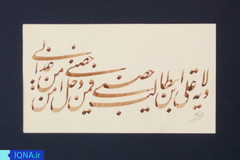 ولایة علی بن ابیطالب حصنی فمن دخل حصنی امن من عذابی
IQNA.ir